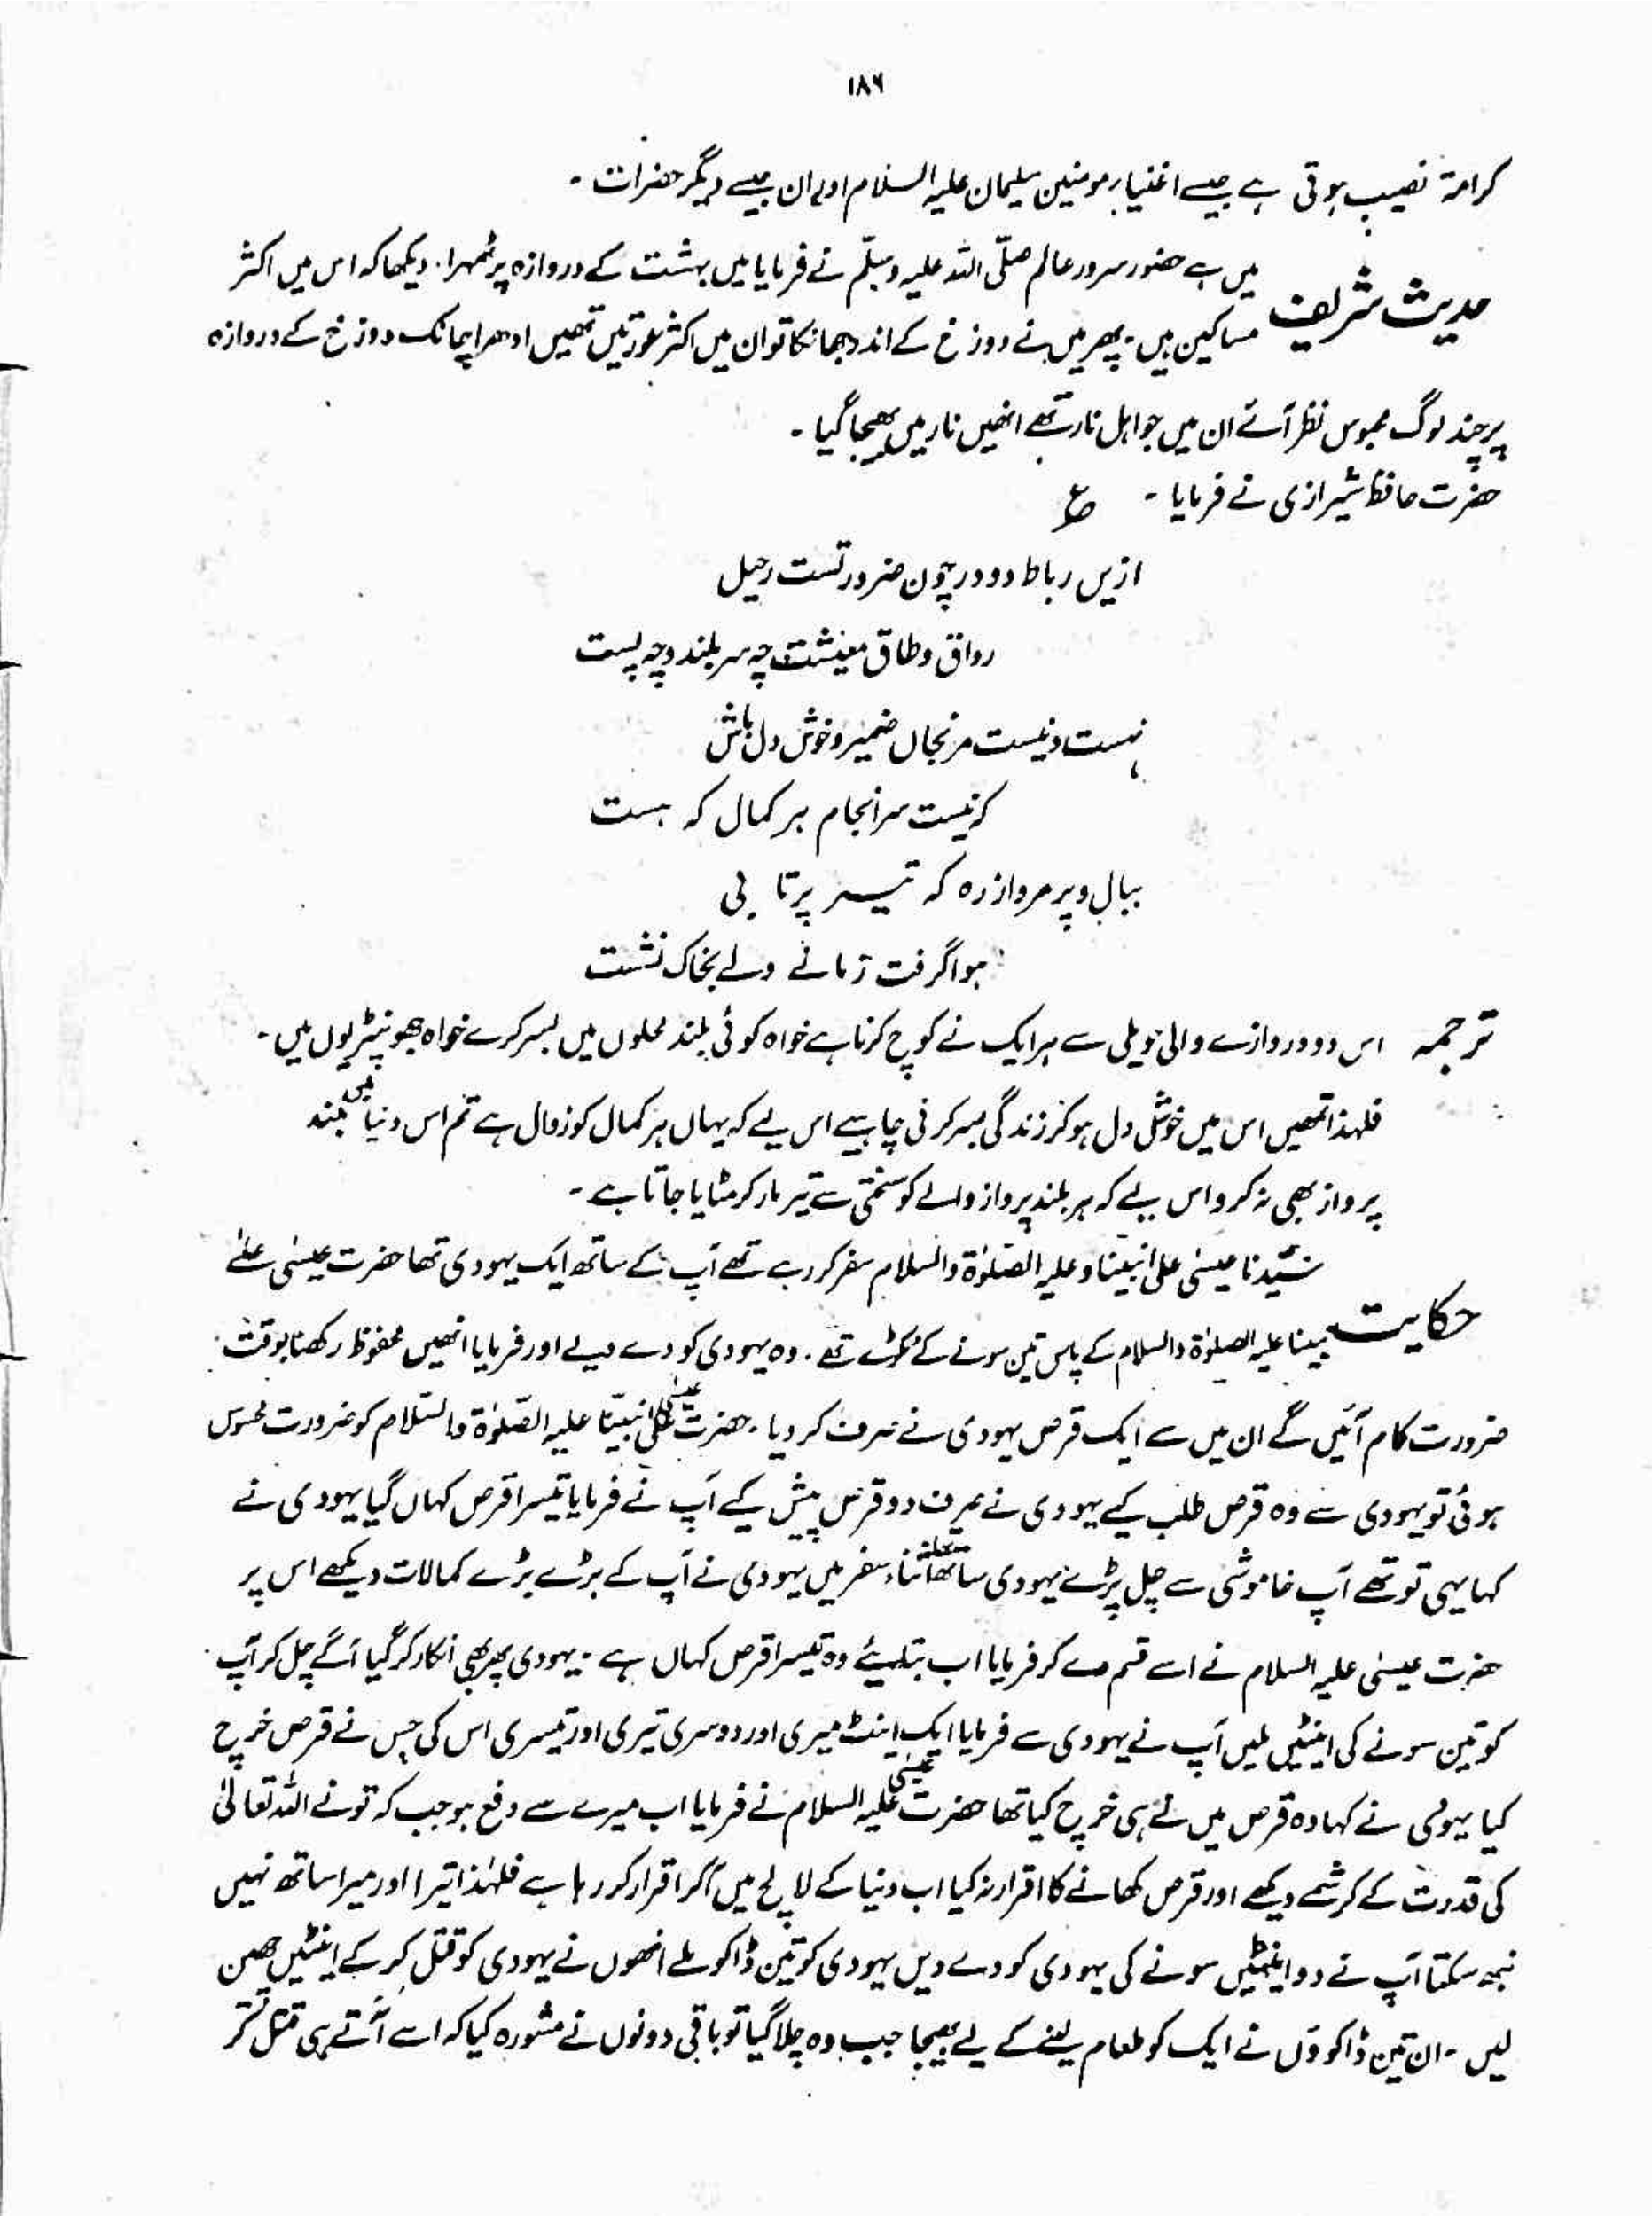 ۱۸۶
کرامۃ نصیب ہوتی ہے جیسے اغنیاء مومنین سلیمان علیہ السلام اور ان جیسے دیگر حضرات ۔
حدیث شریف میں ہے حضور سرور عالم صلّی اللہ علیہ وسلّم نے فرمایا میں بہشت کے دروازہ پر ٹھہرا۔ دیکھا کہ اس میں اکثر
مساکین ہیں ۔ پھر میں نے دوزخ کے اندر جھانکا تو ان میں اکثر عورتیں تھیں ادھر اچانک دوزخ کے دروازہ
پر چند لوگ محبوس نظر آئے ان میں جو اہل نار تھے انھیں نار میں بھیجا گیا ۔
حضرت حافظ شیرازی نے فرمایا ۔ ؏
ازیں رباط دو در چون ضرورتست رحیل
رواق و طاق معیشت چہ سر بلند و چہ پست
بہست و نیست مرنجاں ضمیر و خوش دل باش
کہ نیست سرانجام ہر کمال کہ ہست
ببال و پر مرو از رہ کہ تیر پرتابی
ہوا گرفت زمانے ولے بخاک نشست
ترجمہ اس دو دروازے والی حویلی سے ہر ایک نے کوچ کرنا ہے خواہ کوئی بلند محلوں میں بسر کرے خواہ جھونپڑیوں میں ۔
فلہذا تمھیں اس میں خوش دل ہو کر زندگی بسر کرنی چاہیے اس لیے کہ یہاں ہر کمال کو زوال ہے تم اس دنیا میں بلند
پرواز بھی نہ کرو اس لیے کہ ہر بلند پرواز والے کو سختی سے تیر مار کر مٹایا جاتا ہے ۔
حکایت سیّدنا عیسٰی علیٰ نبینا و علیہ الصّلوٰۃ والسلام سفر کر رہے تھے آپ کے ساتھ ایک یہودی تھا حضرت عیسٰی علےٰ
نبینا علیہ الصلوٰۃ والسلام کے پاس تین سونے کے ٹکڑے تھے ۔ وہ یہودی کو دے دیے اور فرمایا انھیں محفوظ رکھنا بوقت
ضرورت کام آئیں گے ان میں سے ایک قرص یہودی نے صرف کر دیا ۔ حضرت عیسٰی علیٰ نبیّنا علیہ الصّلوٰۃ والسّلام کو ضرورت محسوس
ہوئی تو یہودی سے وہ قرص طلب کیے یہودی نے صرف دو قرص پیش کیے آپ نے فرمایا تیسرا قرص کہاں گیا یہودی نے
کہا یہی تو تھے آپ خاموشی سے چل پڑے یہودی ساتھ تھا اثناء سفر میں یہودی نے آپ کے بڑے بڑے کمالات دیکھے اس پر
حضرت عیسٰی علیہ السلام نے اسے قسم دے کر فرمایا اب بتلایئے وہ تیسرا قرص کہاں ہے ۔ یہودی پھر بھی انکار کر گیا آگے چل کر آپ
کو تین سونے کی اینٹیں ملیں آپ نے یہودی سے فرمایا ایک اینٹ میری اور دوسری تیری اور تیسری اس کی جس نے قرص خرچ
کیا یہودی نے کہا وہ قرص میں نے ہی خرچ کیا تھا حضرت عیسٰی علیہ السلام نے فرمایا اب میرے سے دفع ہو جب کہ تو نے اللہ تعالیٰ
کی قدرت کے کرشمے دیکھے اور قرص کھانے کا اقرار نہ کیا اب دنیا کے لالچ میں آکر اقرار کر رہا ہے فلہٰذا تیرا اور میرا ساتھ نہیں
نبھ سکتا آپ نے دو اینٹیں سونے کی یہودی کو دے دیں یہودی کو تین ڈاکو ملے انھوں نے یہودی کو قتل کر کے اینٹیں چھین
لیں ۔ ان تین ڈاکوؤں نے ایک کو طعام لینے کے لیے بھیجا جب وہ چلا گیا تو باقی دونوں نے مشورہ کیا کہ اسے آتے ہی قتل کر